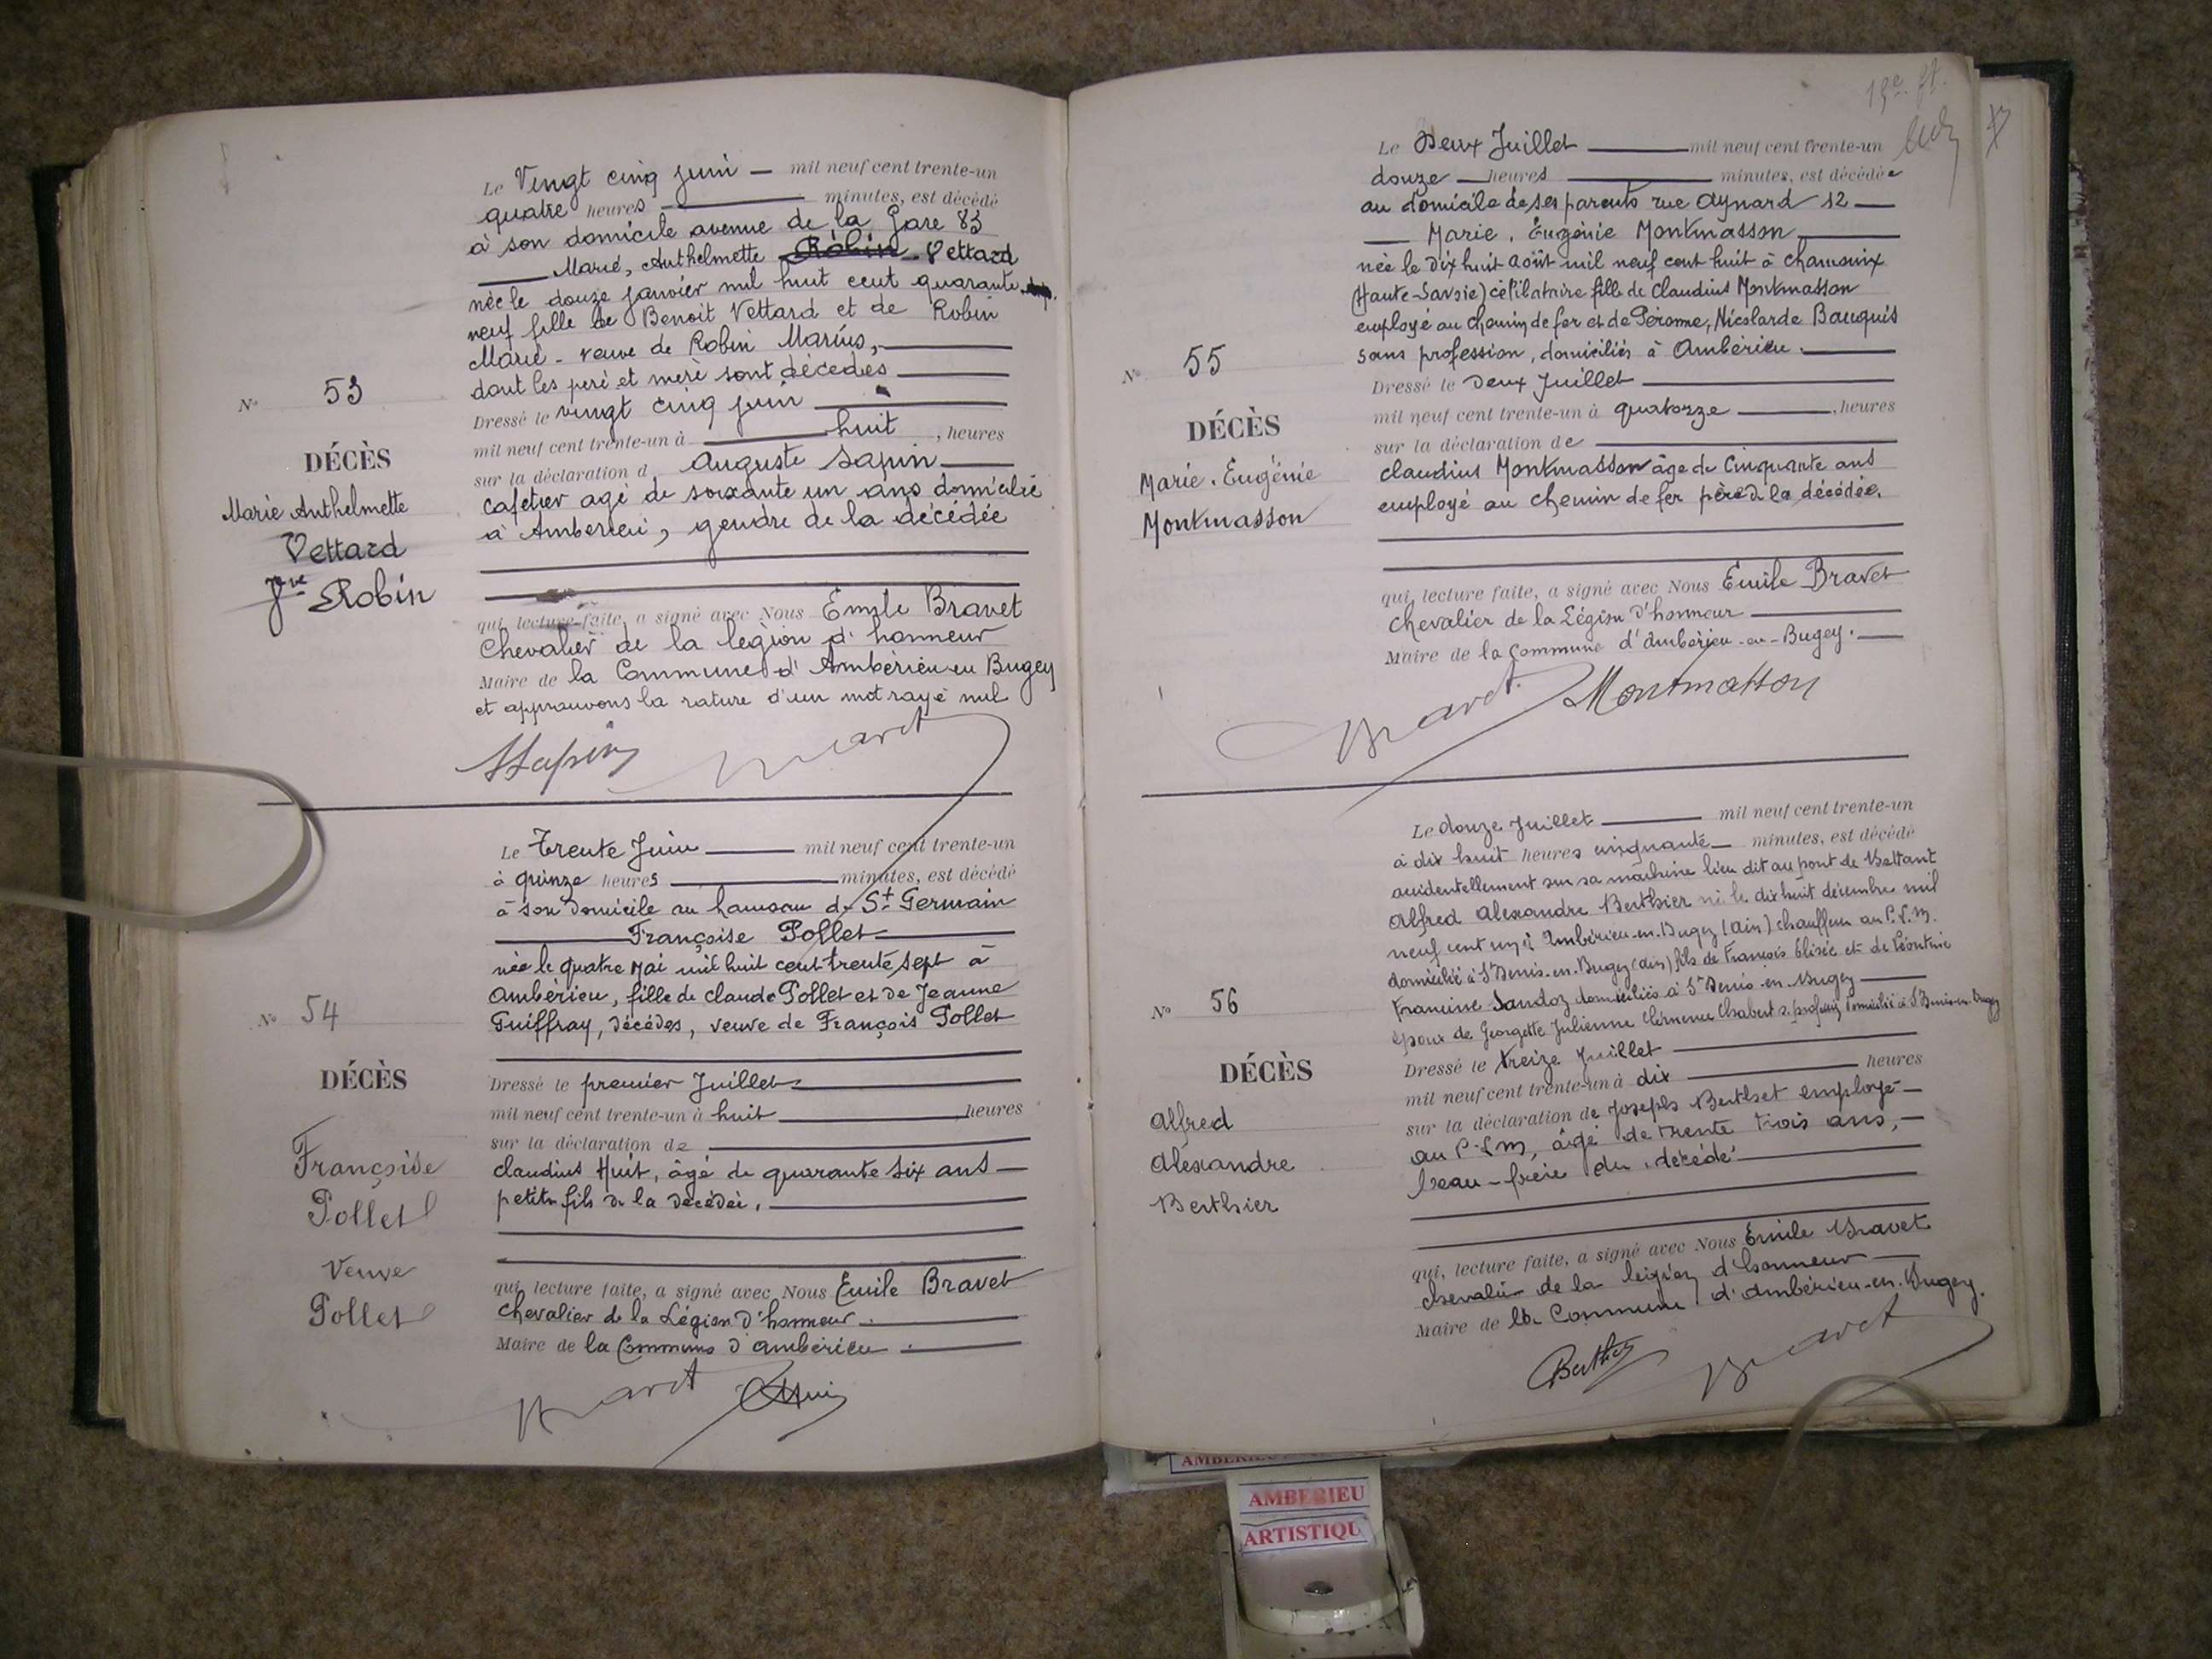 Le Vingt cinq juin — mil neuf cent trente-un
quatre heures — minutes, est décédé
à son domicile avenue de la Gare 83
Marie, Anthelmette Robin Vettard
née le douze janvier mil huit cent quarante
neuf fille de Benoit Vettard et de Robin
Marie - veuve de Robin Marius,
dont les père et mère sont décedés
N° 53
DÉCÈS
Marie Anthelmette
Vettard
Vve Robin
Dressé le vingt cinq juin
mil neuf cent trente-un à huit, heures
sur la déclaration d Auguste Sapin
cafetier agé de soixante un ans domicilié
à Amberieu, gendre de la décédée
qui, lecture faite, a signé avec Nous Emile Bravet
Chevalier de la légion d'honneur
Maire de la Commune d'Ambérieu en Bugey
et approuvons la rature d'un mot rayé nul
Sapin Bravet
Le Trente Juin mil neuf cent trente-un
à quinze heures minutes, est décédé
à son domicile au hameau de St Germain
Françoise Pollet
née le quatre Mai mil huit cent trente sept à
Ambérieu, fille de Claude Pollet et de Jeanne
Guiffray, décédés, veuve de François Pollet
N° 54
DÉCÈS
Françoise
Pollet
Veuve
Pollet
Dressé le premier Juillet
mil neuf cent trente-un à huit heures
sur la déclaration de
Claudius Huit, âgé de quarante six ans
petit fils de la décédée.
qui, lecture faite, a signé avec Nous Emile Bravet
Chevalier de la Légion d'honneur
Maire de la Commune d'Ambérieu
Bravet
Le Deux Juillet mil neuf cent trente-un
douze heures minutes, est décédée
au domicile de ses parents rue Aynard 12
Marie, Eugénie Montmasson
née le dix huit août mil neuf cent huit à Chamonix
(Haute-Savoie) célibataire fille de Claudius Montmasson
employé au chemin de fer et de Péronne, Nicolarde Bauquis
sans profession, domiciliés à Ambérieu.
N° 55
DÉCÈS
Marie. Eugénie
Montmasson
Dressé le Deux Juillet
mil neuf cent trente-un à quatorze, heures
sur la déclaration de
Claudius Montmasson âgé de Cinquante ans
employé au chemin de fer père de la décédée.
qui, lecture faite, a signé avec Nous Emile Bravet
Chevalier de la Légion d'honneur
Maire de la Commune d'Ambérieu-en-Bugey.
Bravet Montmasson
Le douze Juillet mil neuf cent trente-un
à dix huit heures cinquante minutes, est décédé
accidentellement sur sa machine lieu dit au pont de Bettant
Alfred Alexandre Berthier né le dix huit décembre mil
neuf cent un à Ambérieu-en-Bugey (Ain) chauffeur au P.L.M.
domicilié à St Denis-en-Bugey (Ain) fils de François Elisée et de Léontine
Francine Sandoz domiciliés à St Denis-en-Bugey
époux de Georgette Julienne Clémence Chabert s. profession domicilié à St Denis-en-Bugey
N° 56
DÉCÈS
Alfred
Alexandre
Berthier
Dressé le treize Juillet
mil neuf cent trente-un à dix heures
sur la déclaration de Joseph Berthet employé
au P.L.M, âgé de trente trois ans,
beau-frère du décédé
qui, lecture faite, a signé avec Nous Emile Bravet
chevalier de la légion d'honneur
Maire de la Commune d'Ambérieu-en-Bugey.
Berthet Bravet
AMBERIEU
ARTISTIQU